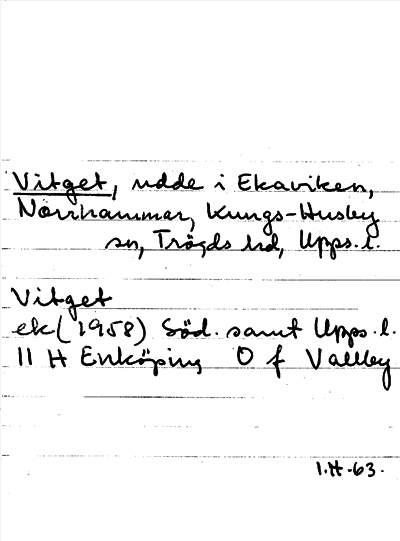 Vitget, udde i Ekaviken,
Norrhammar, Kungs-Husby
sn, Trögds hd, Upps.l.
Vitget
ek (1958) Söd. samt Upps.l.
11 H Enköping O f Vallby
I.H-63.